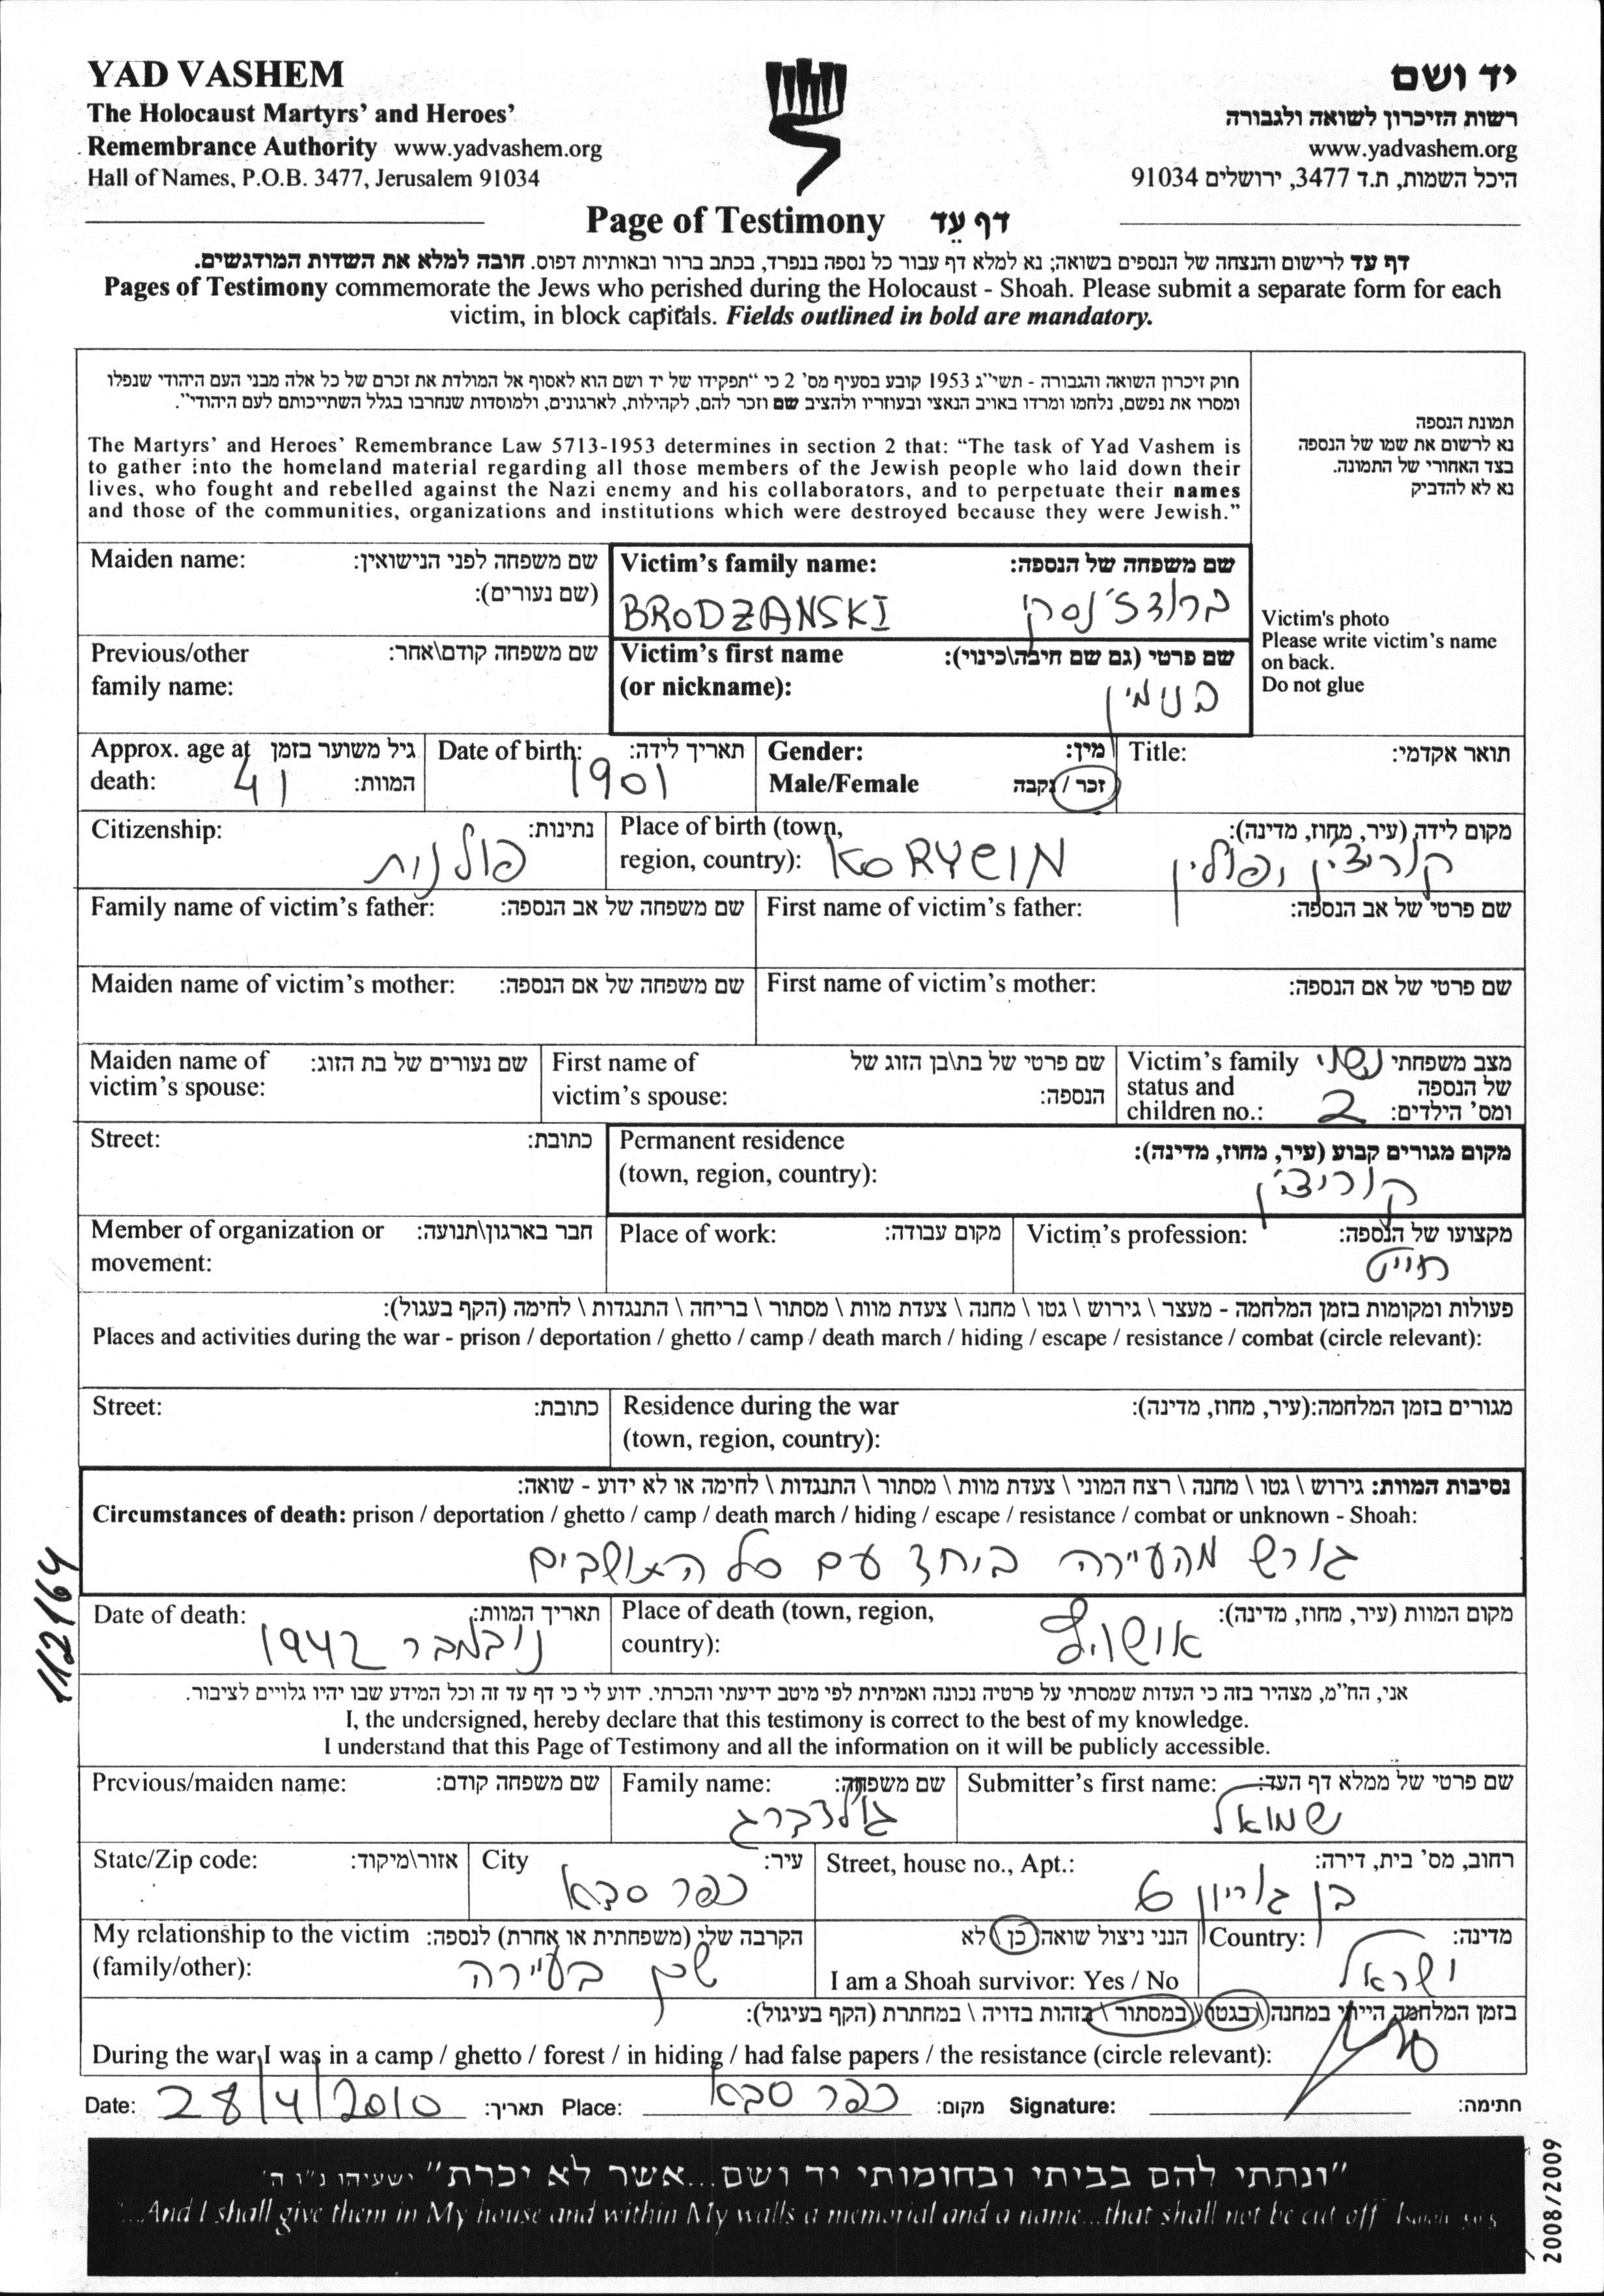 YAD VASHEM
The Holocaust Martyrs' and Heroes'
Remembrance Authority www.yadvashem.org
Hall of Names, P.O.B. 3477, Jerusalem 91034
יד ושם
רשות הזיכרון לשואה ולגבורה
www.yadvashem.org
היכל השמות, ת.ד 3477, ירושלים 91034
Page of Testimony דף עֵד
דף עד לרישום והנצחה של הנספים בשואה; נא למלא דף עבור כל נספה בנפרד, בכתב ברור ובאותיות דפוס. חובה למלא את השדות המודגשים.
Pages of Testimony commemorate the Jews who perished during the Holocaust - Shoah. Please submit a separate form for each
victim, in block capitals. Fields outlined in bold are mandatory.
חוק זיכרון השואה והגבורה - תשי"ג 1953 קובע בסעיף מס' 2 כי "תפקידו של יד ושם הוא לאסוף אל המולדת את זכרם של כל אלה מבני העם היהודי שנפלו
ומסרו את נפשם, נלחמו ומרדו באויב הנאצי ובעוזריו ולהציב שם וזכר להם, לקהילות, לארגונים, ולמוסדות שנחרבו בגלל השתייכותם לעם היהודי".
The Martyrs' and Heroes' Remembrance Law 5713-1953 determines in section 2 that: "The task of Yad Vashem is
to gather into the homeland material regarding all those members of the Jewish people who laid down their
lives, who fought and rebelled against the Nazi enemy and his collaborators, and to perpetuate their names
and those of the communities, organizations and institutions which were destroyed because they were Jewish."
תמונת הנספה
נא לרשום את שמו של הנספה
בצד האחורי של התמונה.
נא לא להדביק
Victim's photo
Please write victim's name
on back.
Do not glue
Maiden name: שם משפחה לפני הנישואין:
(שם נעורים):
Victim's family name: שם משפחה של הנספה:
BRODZANSKI ברודז'נסקי
Previous/other שם משפחה קודם\אחר:
family name:
Victim's first name שם פרטי (גם שם חיבה\כינוי):
(or nickname):
בנימין
Approx. age at גיל משוער בזמן
death: 41 המוות:
Date of birth: תאריך לידה:
1901
Gender: מין:
Male/Female זכר / נקבה
Title: תואר אקדמי:
Citizenship: נתינות:
פולנית
Place of birth (town, מקום לידה (עיר, מחוז, מדינה):
region, country): KORYCIN קוריצ'ין, פולין
Family name of victim's father: שם משפחה של אב הנספה:
First name of victim's father: שם פרטי של אב הנספה:
Maiden name of victim's mother: שם משפחה של אם הנספה:
First name of victim's mother: שם פרטי של אם הנספה:
Maiden name of שם נעורים של בת הזוג:
victim's spouse:
First name of שם פרטי של בת\בן הזוג של
victim's spouse: הנספה:
Victim's family מצב משפחתי נשוי
status and של הנספה
children no.: 2 ומס' הילדים:
Street: כתובת:
Permanent residence מקום מגורים קבוע (עיר, מחוז, מדינה):
(town, region, country): קוריצ'ין
Member of organization or חבר בארגון\תנועה:
movement:
Place of work: מקום עבודה:
Victim's profession: מקצועו של הנספה:
חייט
פעולות ומקומות בזמן המלחמה - מעצר \ גירוש \ גטו \ מחנה \ צעדת מוות \ מסתור \ בריחה \ התנגדות \ לחימה (הקף בעגול):
Places and activities during the war - prison / deportation / ghetto / camp / death march / hiding / escape / resistance / combat (circle relevant):
Street: כתובת:
Residence during the war מגורים בזמן המלחמה:(עיר, מחוז, מדינה):
(town, region, country):
נסיבות המוות: גירוש \ גטו \ מחנה \ רצח המוני \ צעדת מוות \ מסתור \ התנגדות \ לחימה או לא ידוע - שואה:
Circumstances of death: prison / deportation / ghetto / camp / death march / hiding / escape / resistance / combat or unknown - Shoah:
גורש מהעיירה ביחד עם כל התושבים
112164
Date of death: תאריך המוות:
נובמבר 1942
Place of death (town, region, מקום המוות (עיר, מחוז, מדינה):
country):
אושויץ
אני, הח"מ, מצהיר בזה כי העדות שמסרתי על פרטיה נכונה ואמיתית לפי מיטב ידיעתי והכרתי. ידוע לי כי דף עד זה וכל המידע שבו יהיו גלויים לציבור.
I, the undersigned, hereby declare that this testimony is correct to the best of my knowledge.
I understand that this Page of Testimony and all the information on it will be publicly accessible.
Previous/maiden name: שם משפחה קודם:
Family name: שם משפחה:
גולדברג
Submitter's first name: שם פרטי של ממלא דף העד:
שמואל
State/Zip code: אזור\מיקוד:
City עיר:
כפר סבא
Street, house no., Apt.: רחוב, מס' בית, דירה:
בן גוריון 6
My relationship to the victim הקרבה שלי (משפחתית או אחרת) לנספה:
(family/other): שכן בעיירה
הנני ניצול שואה כן \ לא
I am a Shoah survivor: Yes / No
Country: מדינה:
ישראל
בזמן המלחמה הייתי במחנה \ בגטו \ במסתור \ בזהות בדויה \ במחתרת (הקף בעיגול):
During the war I was in a camp / ghetto / forest / in hiding / had false papers / the resistance (circle relevant):
Date: 28/4/2010 תאריך: Place: כפר סבא מקום: Signature: חתימה:
"ונתתי להם בביתי ובחומותי יד ושם...אשר לא יכרת" ישעיהו נ"ו ה'
"...And I shall give them in My house and within My walls a memorial and a name...that shall not be cut off" Isaiah 56:5
2008/2009